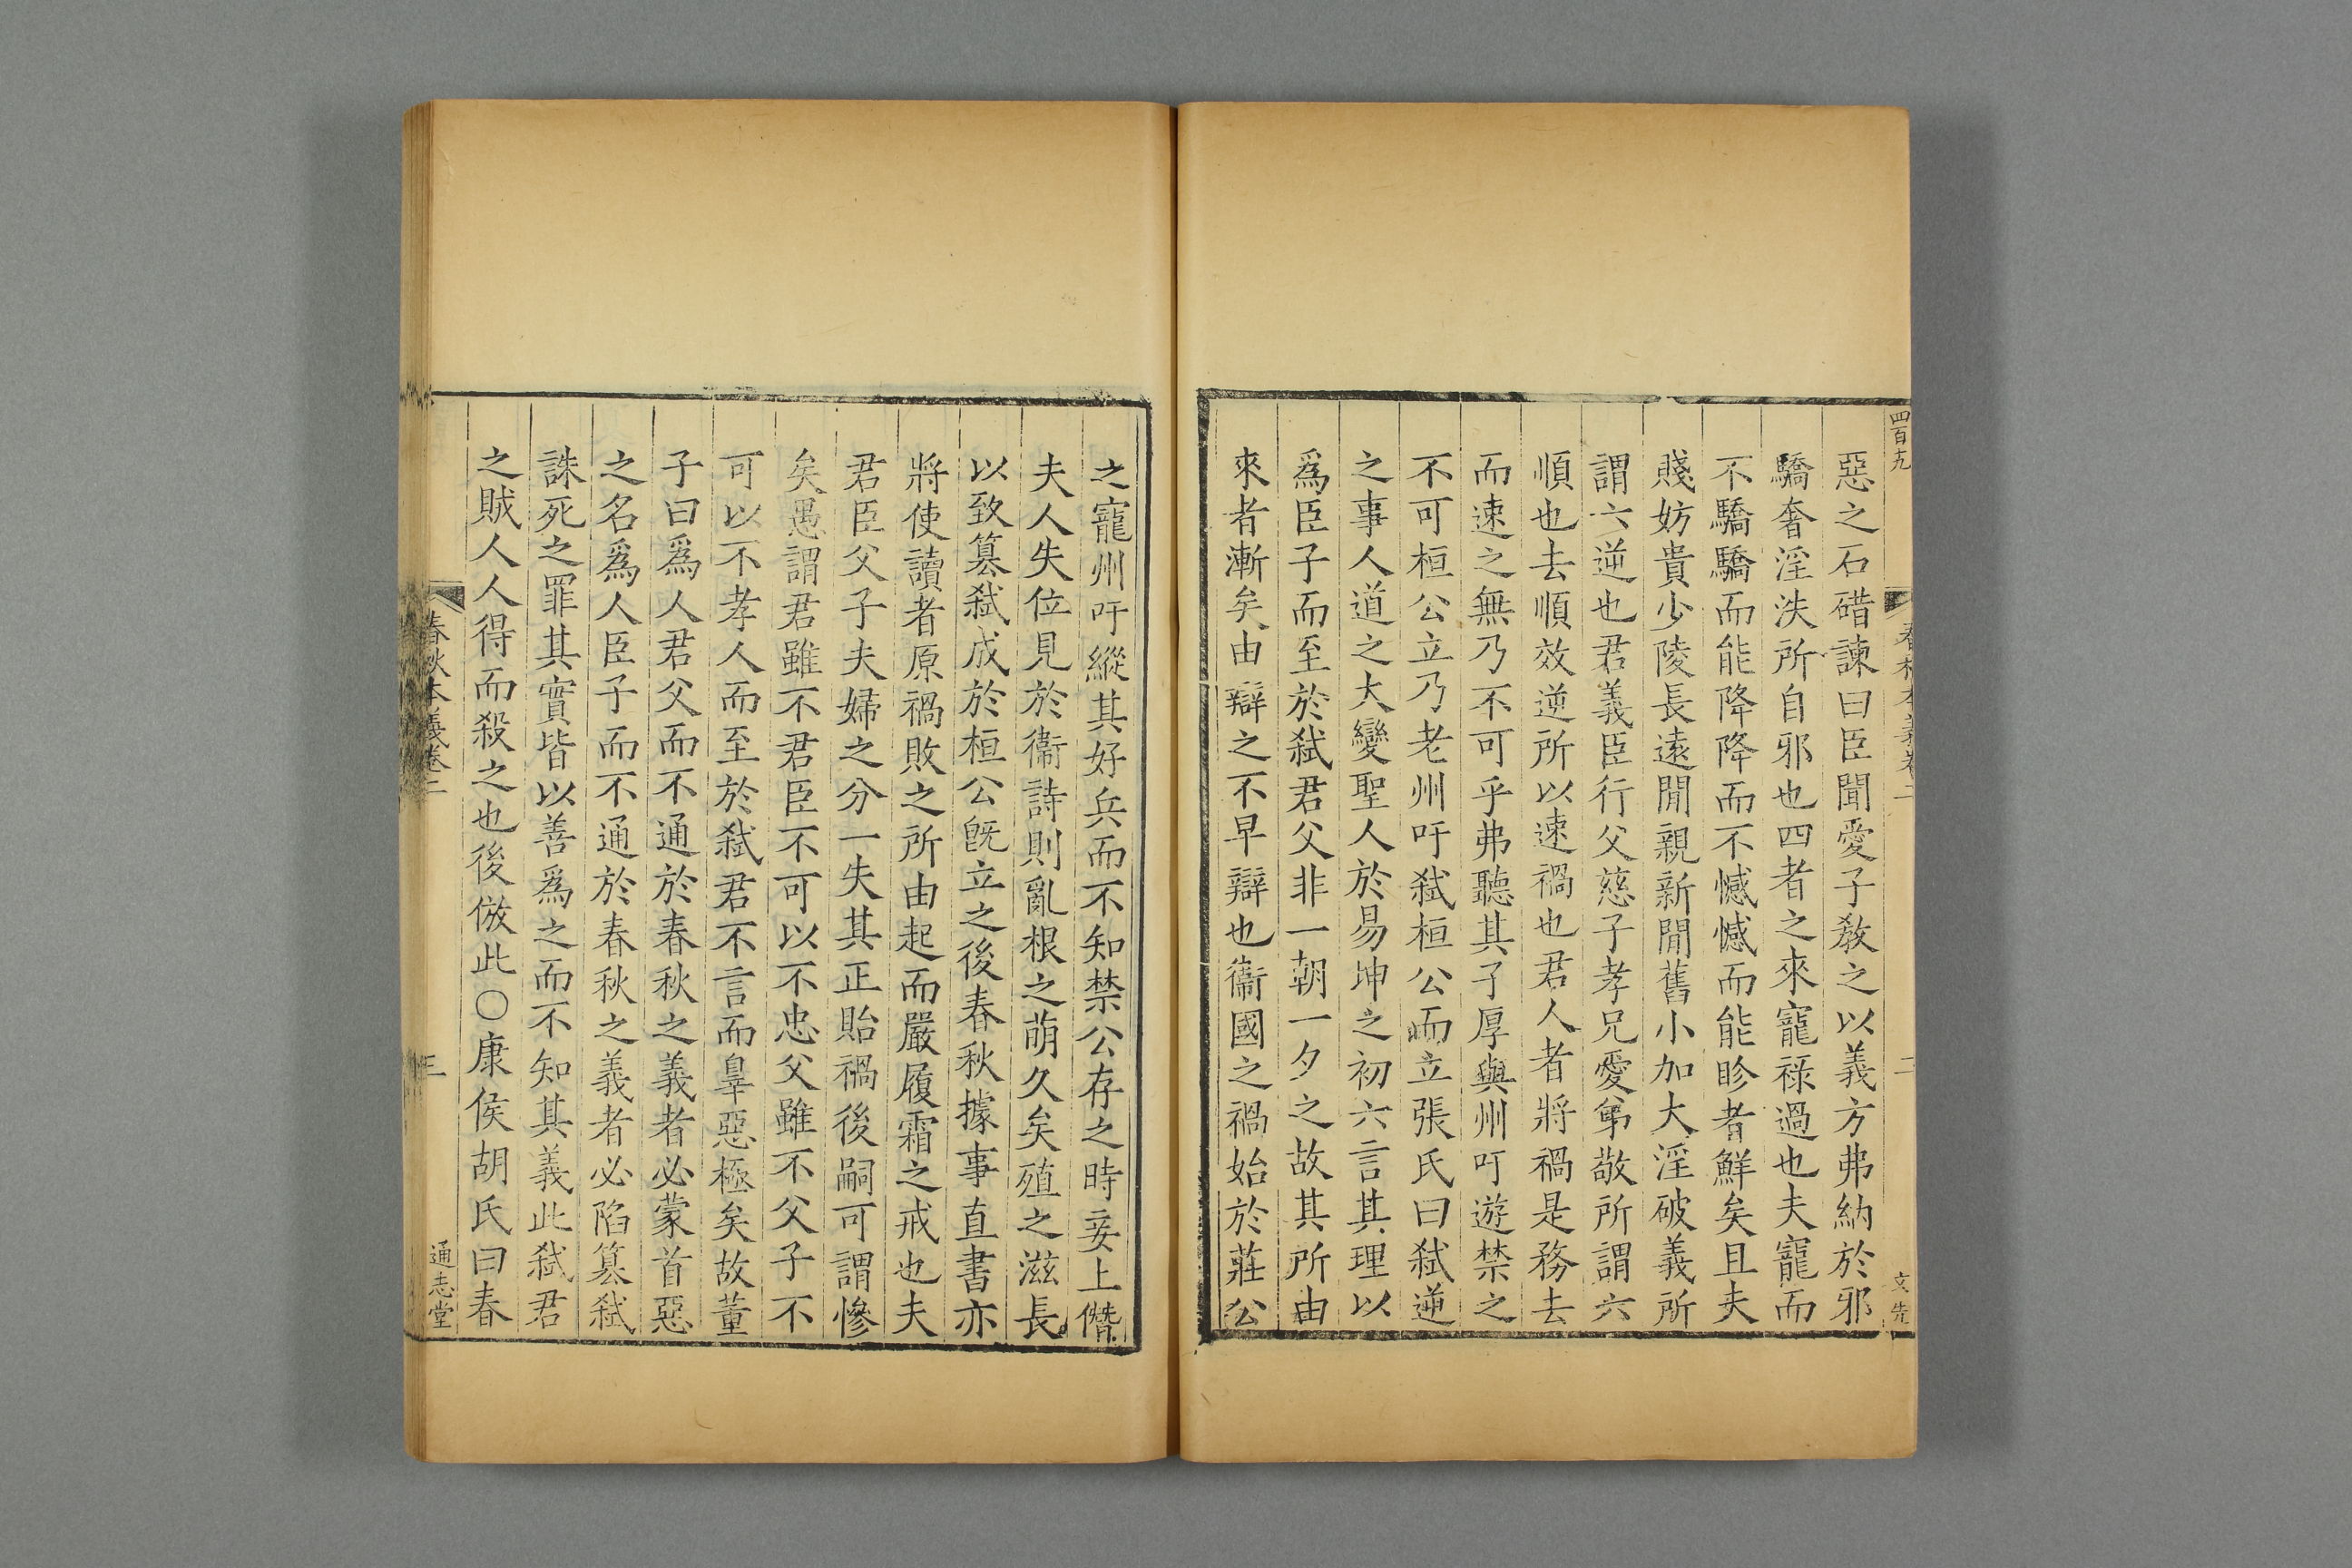 四百十九
春秋本義卷二
二
文先
惡之石碏諫曰臣聞愛子敎之以義方弗納於邪
驕奢淫泆所自邪也四者之來寵祿過也夫寵而
不驕驕而能降降而不憾憾而能眕者鮮矣且夫
賤妨貴少陵長遠閒親新閒舊小加大淫破義所
謂六逆也君義臣行父慈子孝兄愛弟敬所謂六
順也去順效逆所以速禍也君人者將禍是務去
而速之無乃不可乎弗聽其子厚與州吁遊禁之
不可桓公立乃老州吁弑桓公而立張氏曰弑逆
之事人道之大變聖人於易坤之初六言其理以
爲臣子而至於弑君父非一朝一夕之故其所由
來者漸矣由辯之不早辯也衞國之禍始於莊公
之寵州吁縱其好兵而不知禁公存之時妾上僭
夫人失位見於衞詩則亂根之萌久矣殖之滋長
以致篡弑成於桓公旣立之後春秋據事直書亦
將使讀者原禍敗之所由起而嚴履霜之戒也夫
君臣父子夫婦之分一失其正貽禍後嗣可謂慘
矣愚謂君雖不君臣不可以不忠父雖不父子不
可以不孝人而至於弑君不言而辠惡極矣故董
子曰爲人君父而不通於春秋之義者必蒙首惡
之名爲人臣子而不通於春秋之義者必陷篡弑
誅死之罪其實皆以善爲之而不知其義此弑君
之賊人人得而殺之也後倣此○康侯胡氏曰春
春秋本義卷二
三
通志堂